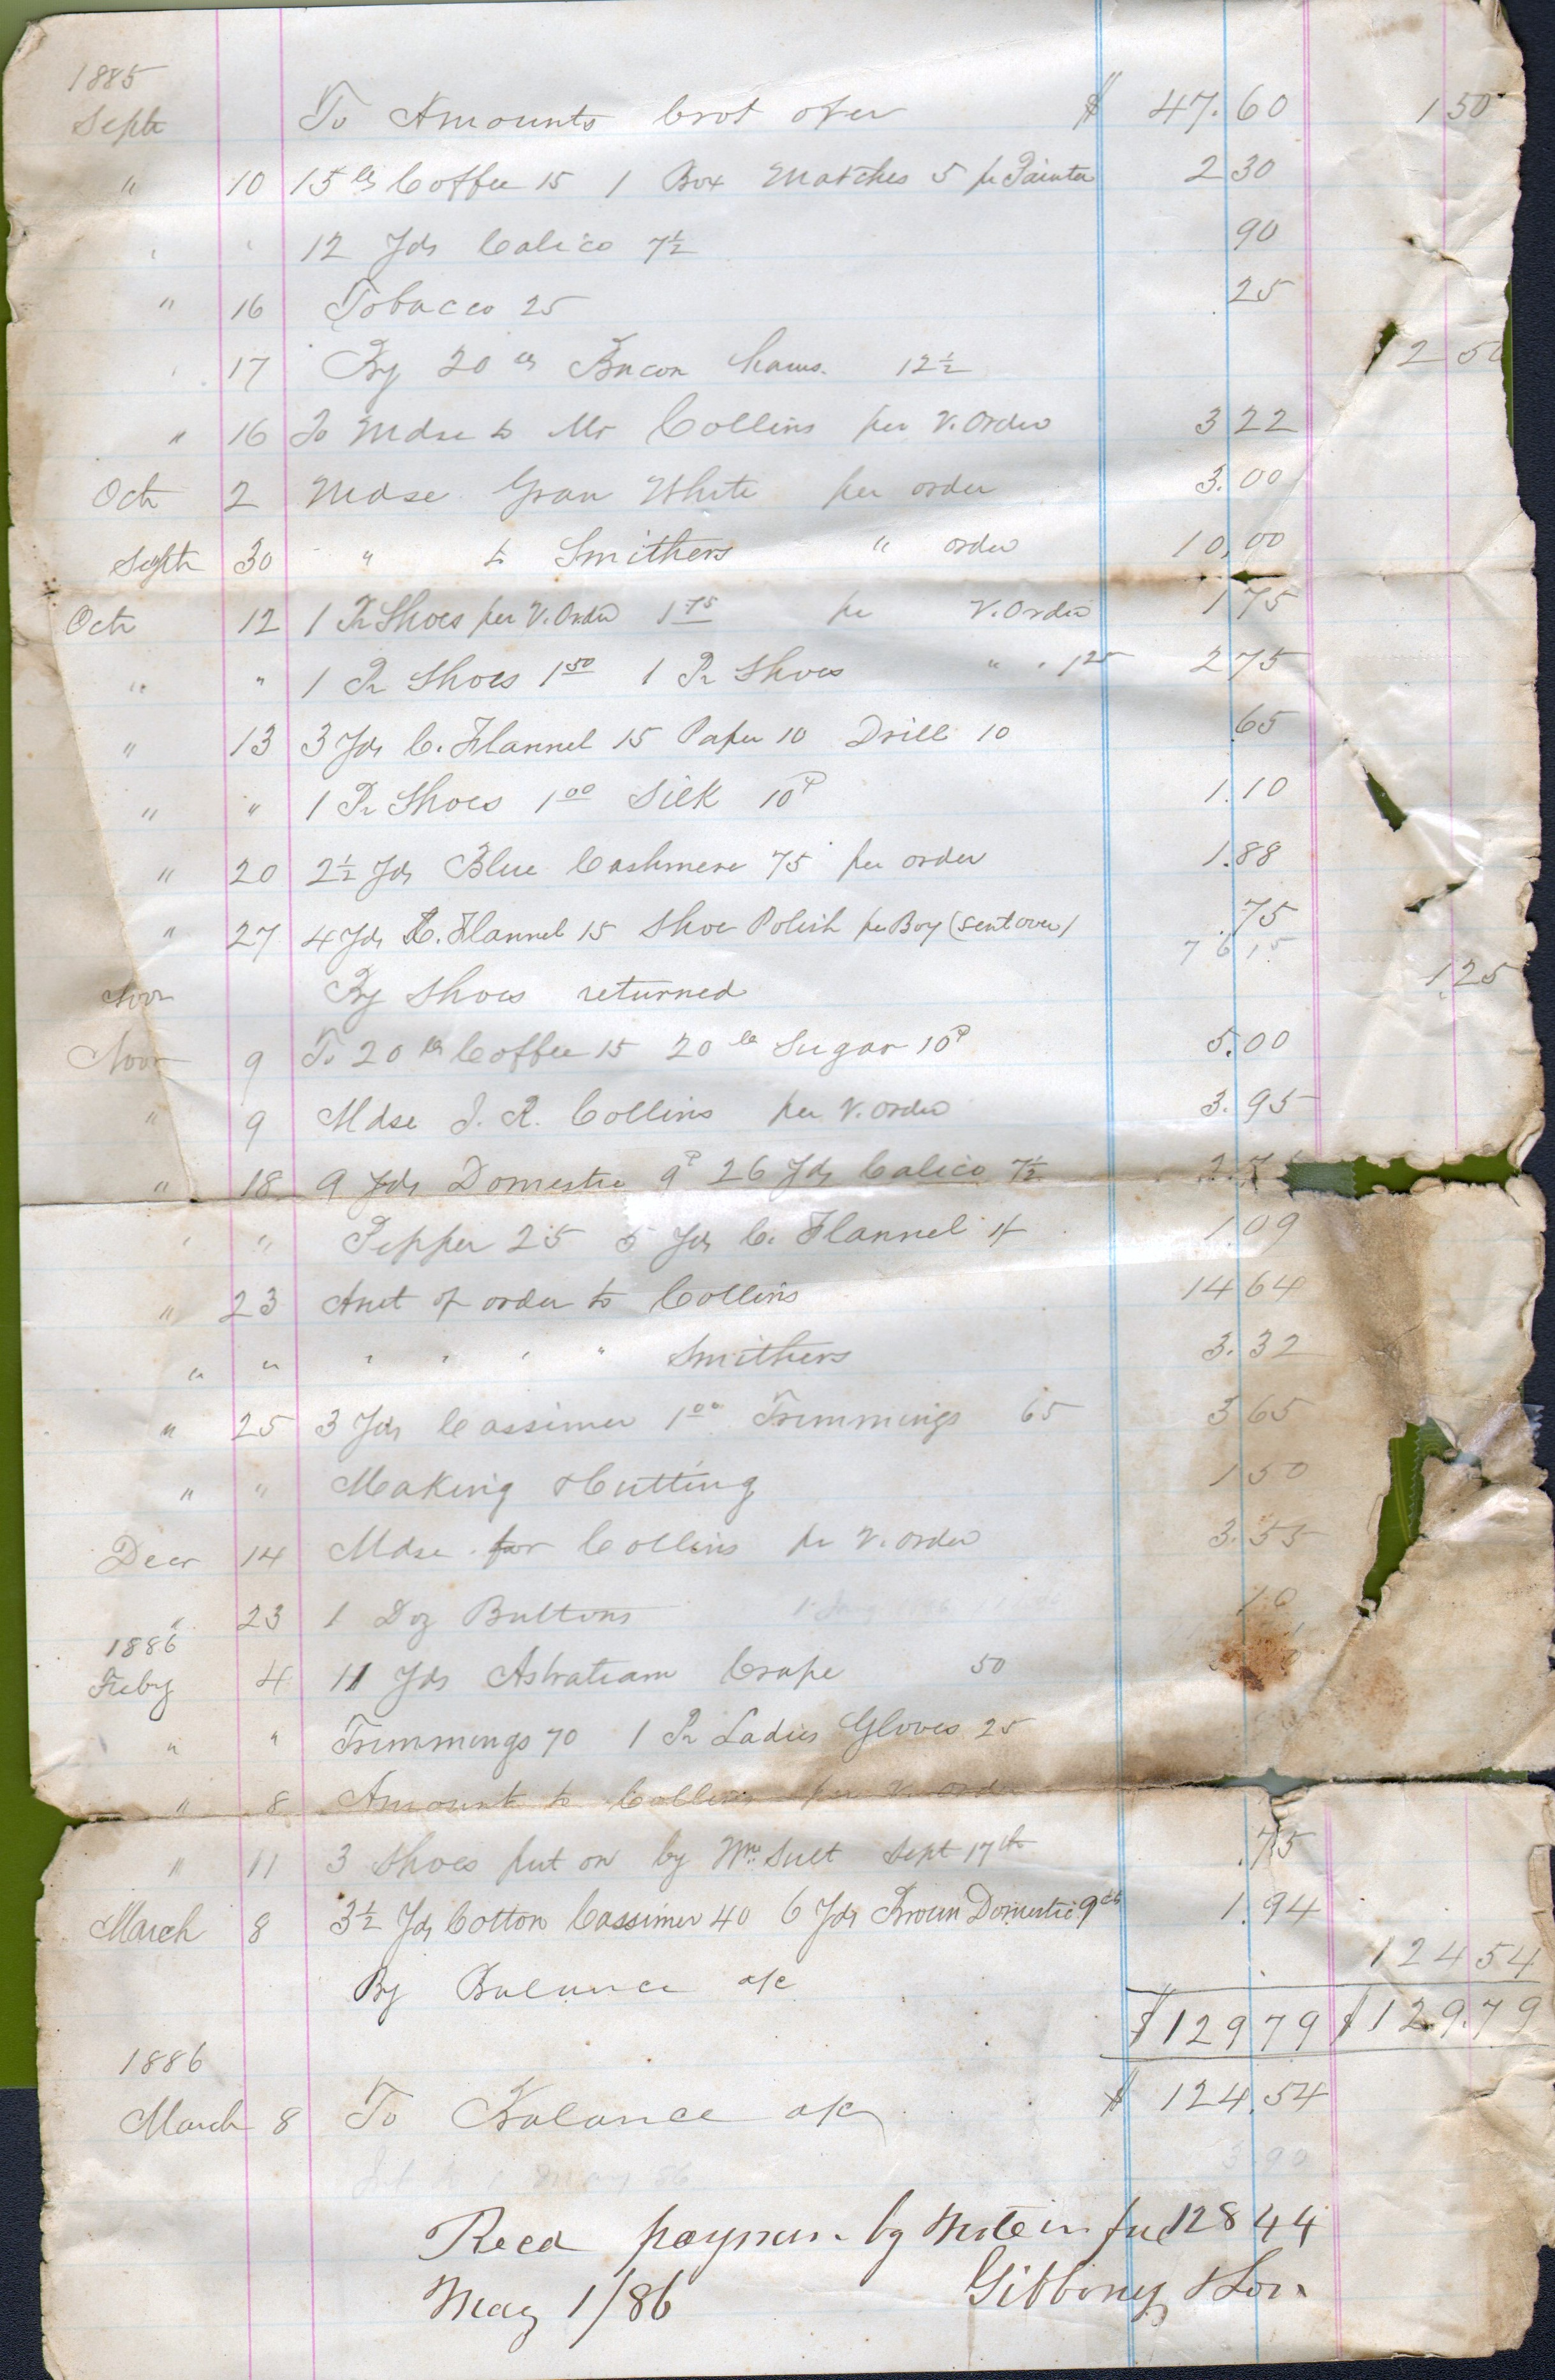 1885
Septr To Amounts brot over $ 47.60 1 50
" 10 15 lbs Coffee 15 1 Box Matches 5 pr Painter 2 30
" " 12 Yds Calico 7½ 90
" 16 Tobacco 25 25
" 17 By 20 lbs Bacon hams. 12½ 2 50
" 16 To Mdse to Mr Collins per V. Order 3 22
Octr 2 Mdse Gran White per order 3.00
Septr 30 " to Smithers " order 10.00
Octr 12 1 Pr Shoes per V. Order 1 75 per V. Order 1 75
" " 1 Pr Shoes 1 50 1 Pr Shoes " " 1 25 2 75
" 13 3 Yds C. Flannel 15 Paper 10 Drill 10 65
" " 1 Pr Shoes 1 00 Silk 10 1.10
" 20 2½ Yds Blue Cashmere 75 per order 1.88
" 27 4 Yds C. Flannel 15 Shoe Polish per Boy (sent over) .75
7 6 1 5
Novr By Shoes returned 1.25
Novr 9 To 20 lbs Coffee 15 20 lbs Sugar 10 5.00
" 9 Mdse J. R. Collins per V. order 3.95
" 18 9 Yds Domestic 9 26 Yds Calico 7½ 2.7
" " Pepper 25 6 Yds C. Flannel 14 1.09
" 23 Amt of order to Collins 14 64
" " " " " " Smithers 3.32
" 25 3 Yds Cassimer 1 00 Trimmings 65 3 65
" " Making & Cutting 1 50
Decr 14 Mdse for Collins pr V. order 3.55
" 23 1 Doz Buttons 10
1886
Feby 4 11 Yds Crape 50
" " Trimmings 70 1 Pr Ladies Gloves 25
" 8 Amount to Collins per V. ord
" 11 3 Shoes put on by Wm. Sult Sept 17th .75
March 8 3½ Yds Cotton Cassimer 40 6 Yds Brown Domestic 9cts 1.94
By Balance a/c 124 54
$129 79 $129.79
1886
March 8 To Balance a/c $ 124.54
3 90
Recd payment by Note in full 128 44
May 1/86 Gibboney & Son